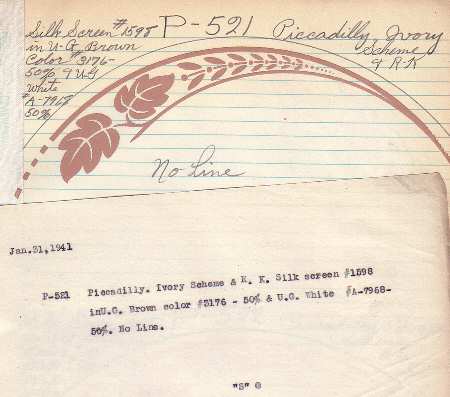 Silk Screen #1598
in U.G. Brown
Color #3176-
50% & UG
White
#A-7968
50%
P-521 Piccadilly Ivory
Scheme
& R.K
No Line
Jan.31,1941
P-521 Piccadilly. Ivory Scheme & R. K. Silk screen #1598
inU.G. Brown color #3176 - 50% & U.G. White #A-7968-
50%. No Line.
"S" @